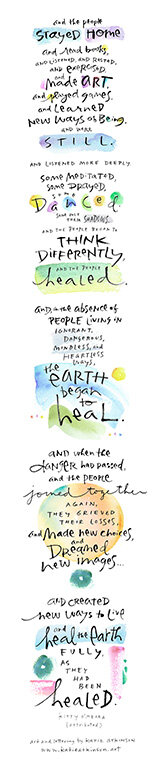 and the people
STAYED HOME
and read books,
and listened, and rested,
and exercised
and made ART,
and played games,
and learned
new ways of Being,
and were
STILL.
and listened more deeply.
some meditated,
some prayed,
some
Danced.
some met their shadows.
and the people began to
THINK
DIFFERENTLY,
and the people
healed.
and, in the absence of
people living in
ignorant,
dangerous,
mindless, and
heartless
ways,
the
EARTH
began
to
heal.
and when the
danger had passed,
and the people
joined together
again,
they grieved
their losses,
and made new choices,
and Dreamed
new images...
and created
new ways to live
and heal the earth
fully,
as
they
had
been
healed.
Kitty O'Meara
art and lettering by Katie Atkinson
www.katieatkinson.art